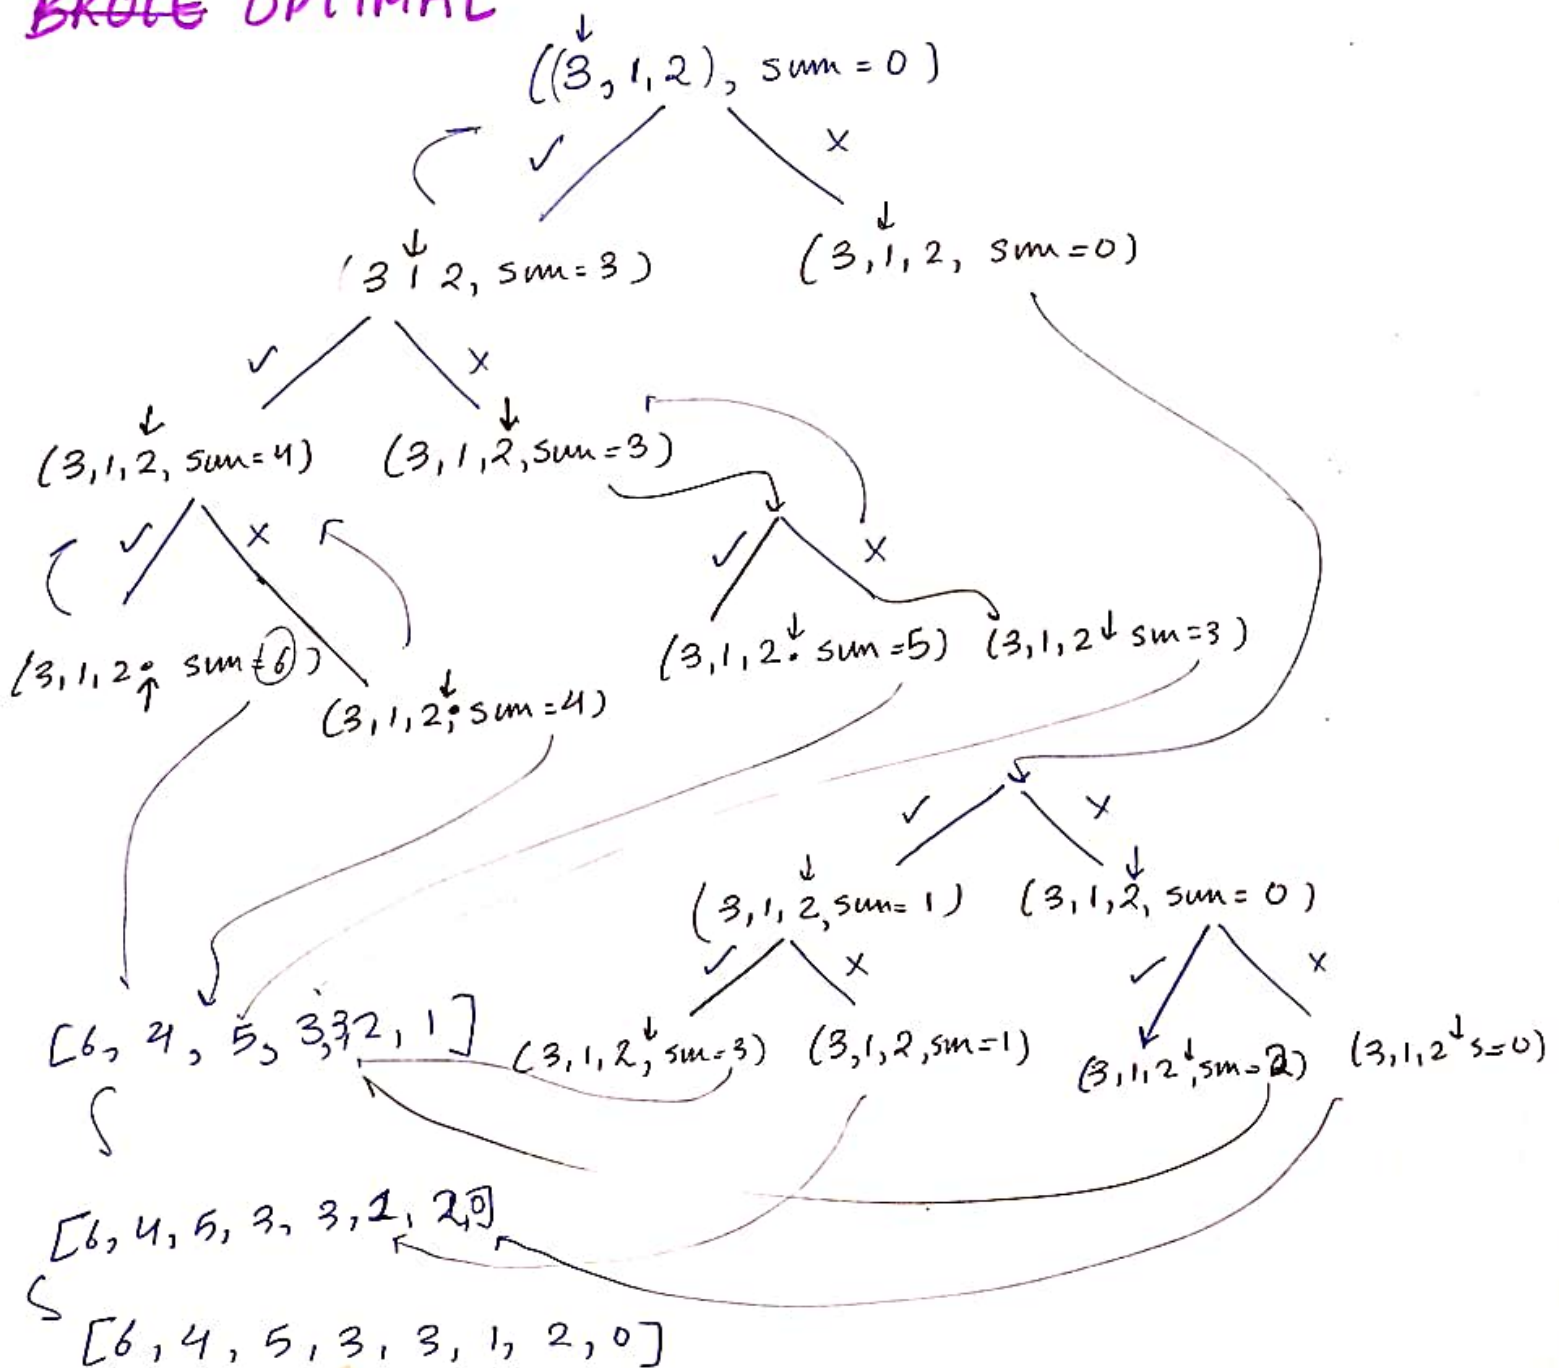 BRUTE OPTIMAL
((3, 1, 2), sum = 0)
✓ x
(3 1 2, sum = 3) (3, 1, 2, sum = 0)
✓ x
(3, 1, 2, sum = 4) (3, 1, 2, sum = 3)
✓ x ✓ x
(3, 1, 2 sum = 6) (3, 1, 2 sum = 5) (3, 1, 2 sm = 3)
(3, 1, 2, sum = 4)
✓ x
(3, 1, 2, sum = 1) (3, 1, 2, sum = 0)
✓ x ✓ x
[6, 4, 5, 3, 3, 2, 1] (3, 1, 2, sm = 3) (3, 1, 2, sm = 1) (3, 1, 2, sm = 2) (3, 1, 2 s = 0)
[6, 4, 5, 3, 3, 1, 2, 0]
[6, 4, 5, 3, 3, 1, 2, 0]